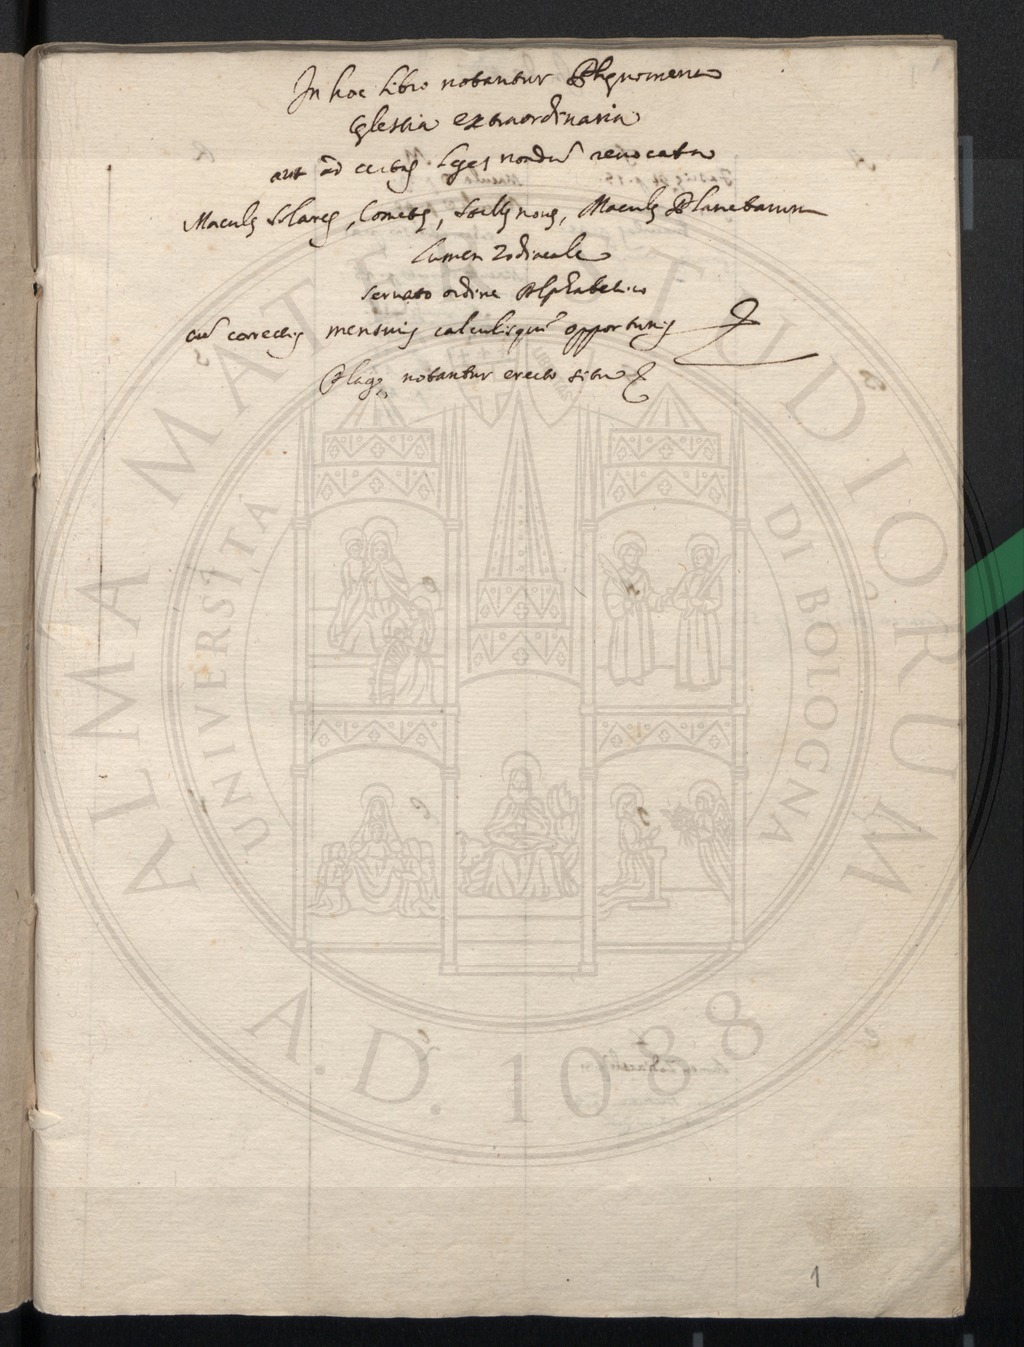 In hoc libro notantur Phęnomena
Cęlestia extraordinaria
aut ad certas leges nondũ revocata
Maculę Solares, Cometę, Stellę novę, Maculę Planetarum
Lumen Zodiacale
servato ordine Alphabetico
cũ correctis mensuris calculisquè opportunis
Plagę notantur erecto situ
ALMA MATER STUDIORUM
UNIVERSITÀ DI BOLOGNA
A.D. 1088
1